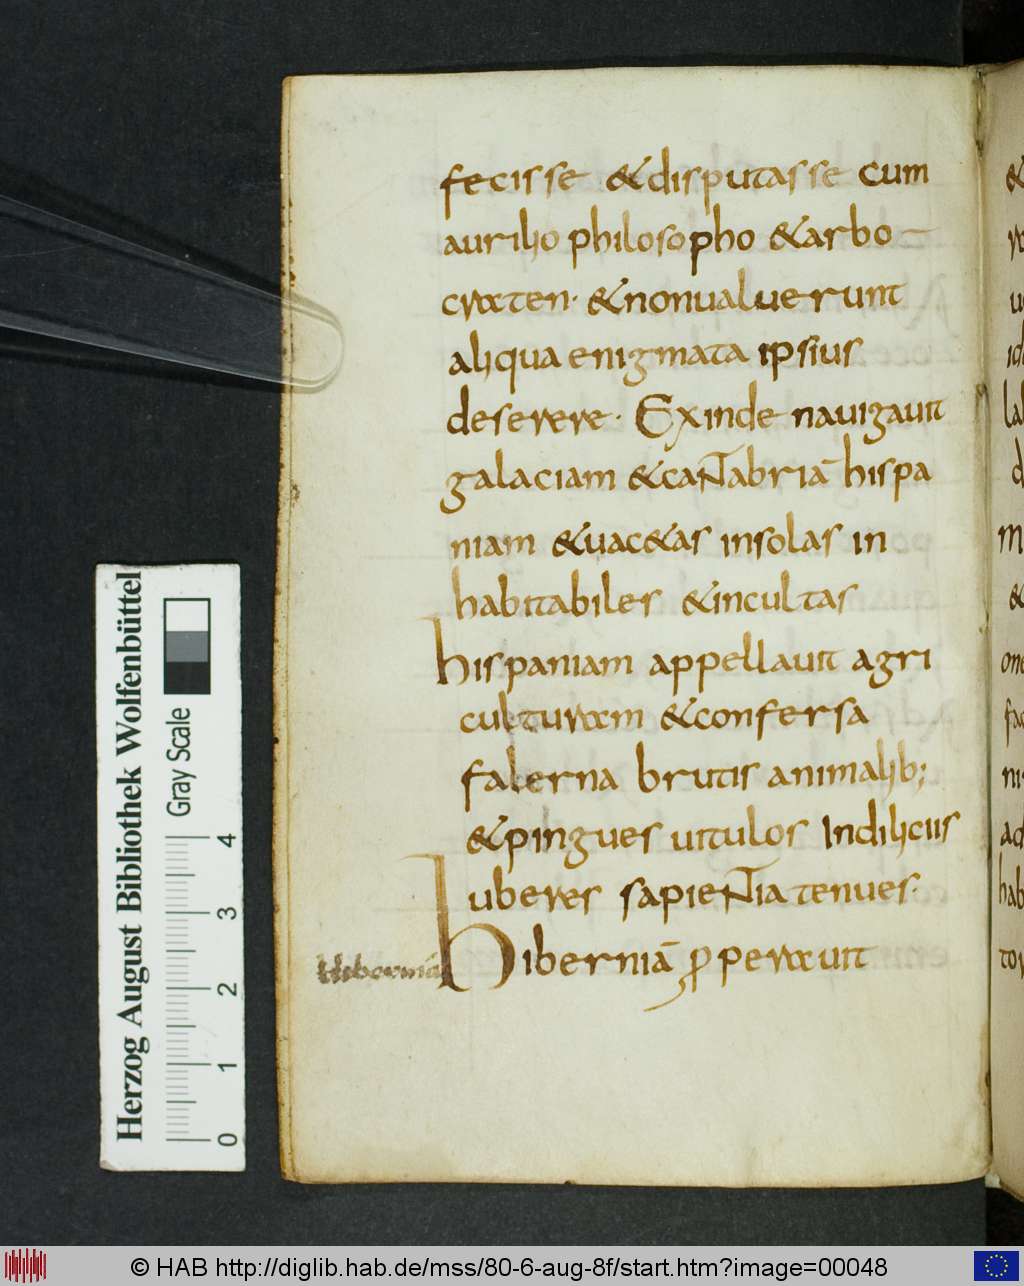 fecisse & disputasse cum
aurilio philosopho & arbo-
craten· & non ualuerunt
aliqua enigmata ipsius
deserere· Exinde nauigauit
galaciam & cantabriā hispa
niam & uac&as insolas in
habitabiles & incultas
hispaniam appellauit agri
culturam & confersa
falerna brutis animalib;
& pingues uitulos Indiliciis
uberes sapientia tenues·
Hiberniā ꝓperauit
Hiberniā
Herzog August Bibliothek Wolfenbüttel
Gray Scale
0 1 2 3 4
© HAB http://diglib.hab.de/mss/80-6-aug-8f/start.htm?image=00048